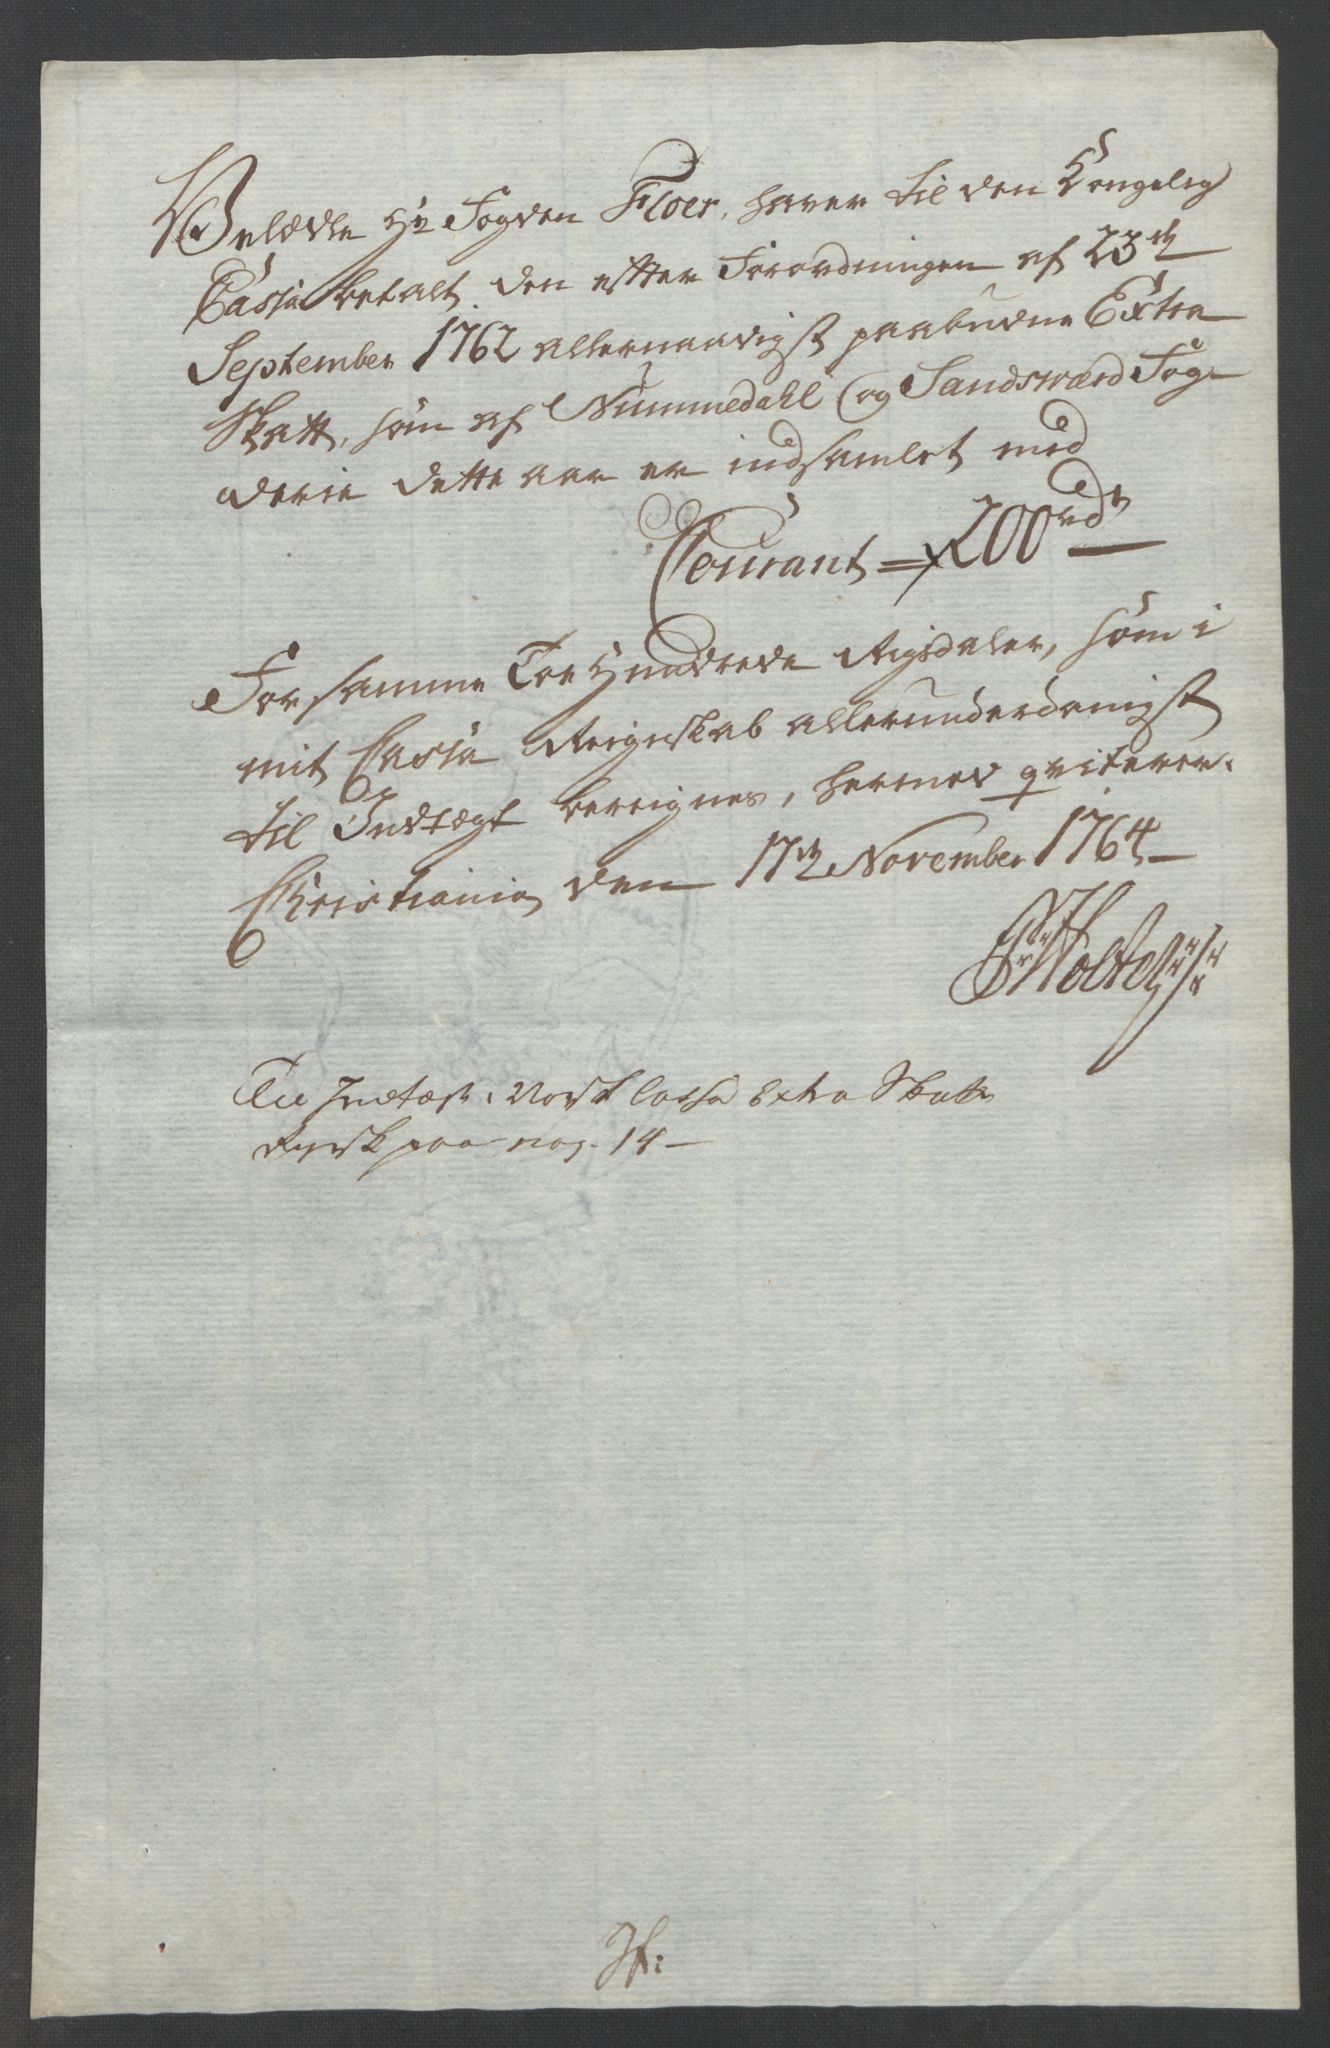 Velædle Hr Fogden Floer, haver til den Kongelig
Cassa betalt den efter Forordningen af 23de
September 1762 allernaadigst paabudne Extra
Skatt, som af Nummedahl og Sandsværd Fog-
derie dette aar er indsamlet med
Courant = 200 rdr
For samme Toe Hundrede Rigsdaler, som i
mit Cassa Reignskab allerunderdanigst
til Indtægt bereignes, hermed qviterer.
Christiania den 17de November 1764
Holte
Til Indtægt i Norsk Cassa Extra Skatte
paa pag. 14